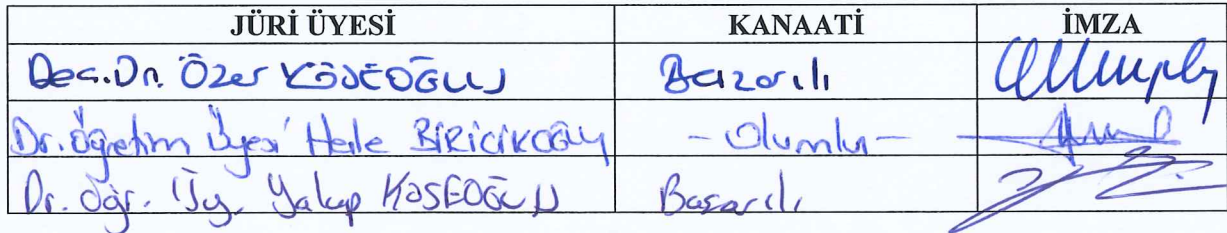 JÜRİ ÜYESİ KANAATİ İMZA
Doç.Dr. Özer KÖSEOĞLU Başarılı
Dr. Öğretim Üyesi Hale BİRİCİKOĞLU - Olumlu -
Dr. Öğr. Üy. Yakup KÖSEOĞLU Başarılı